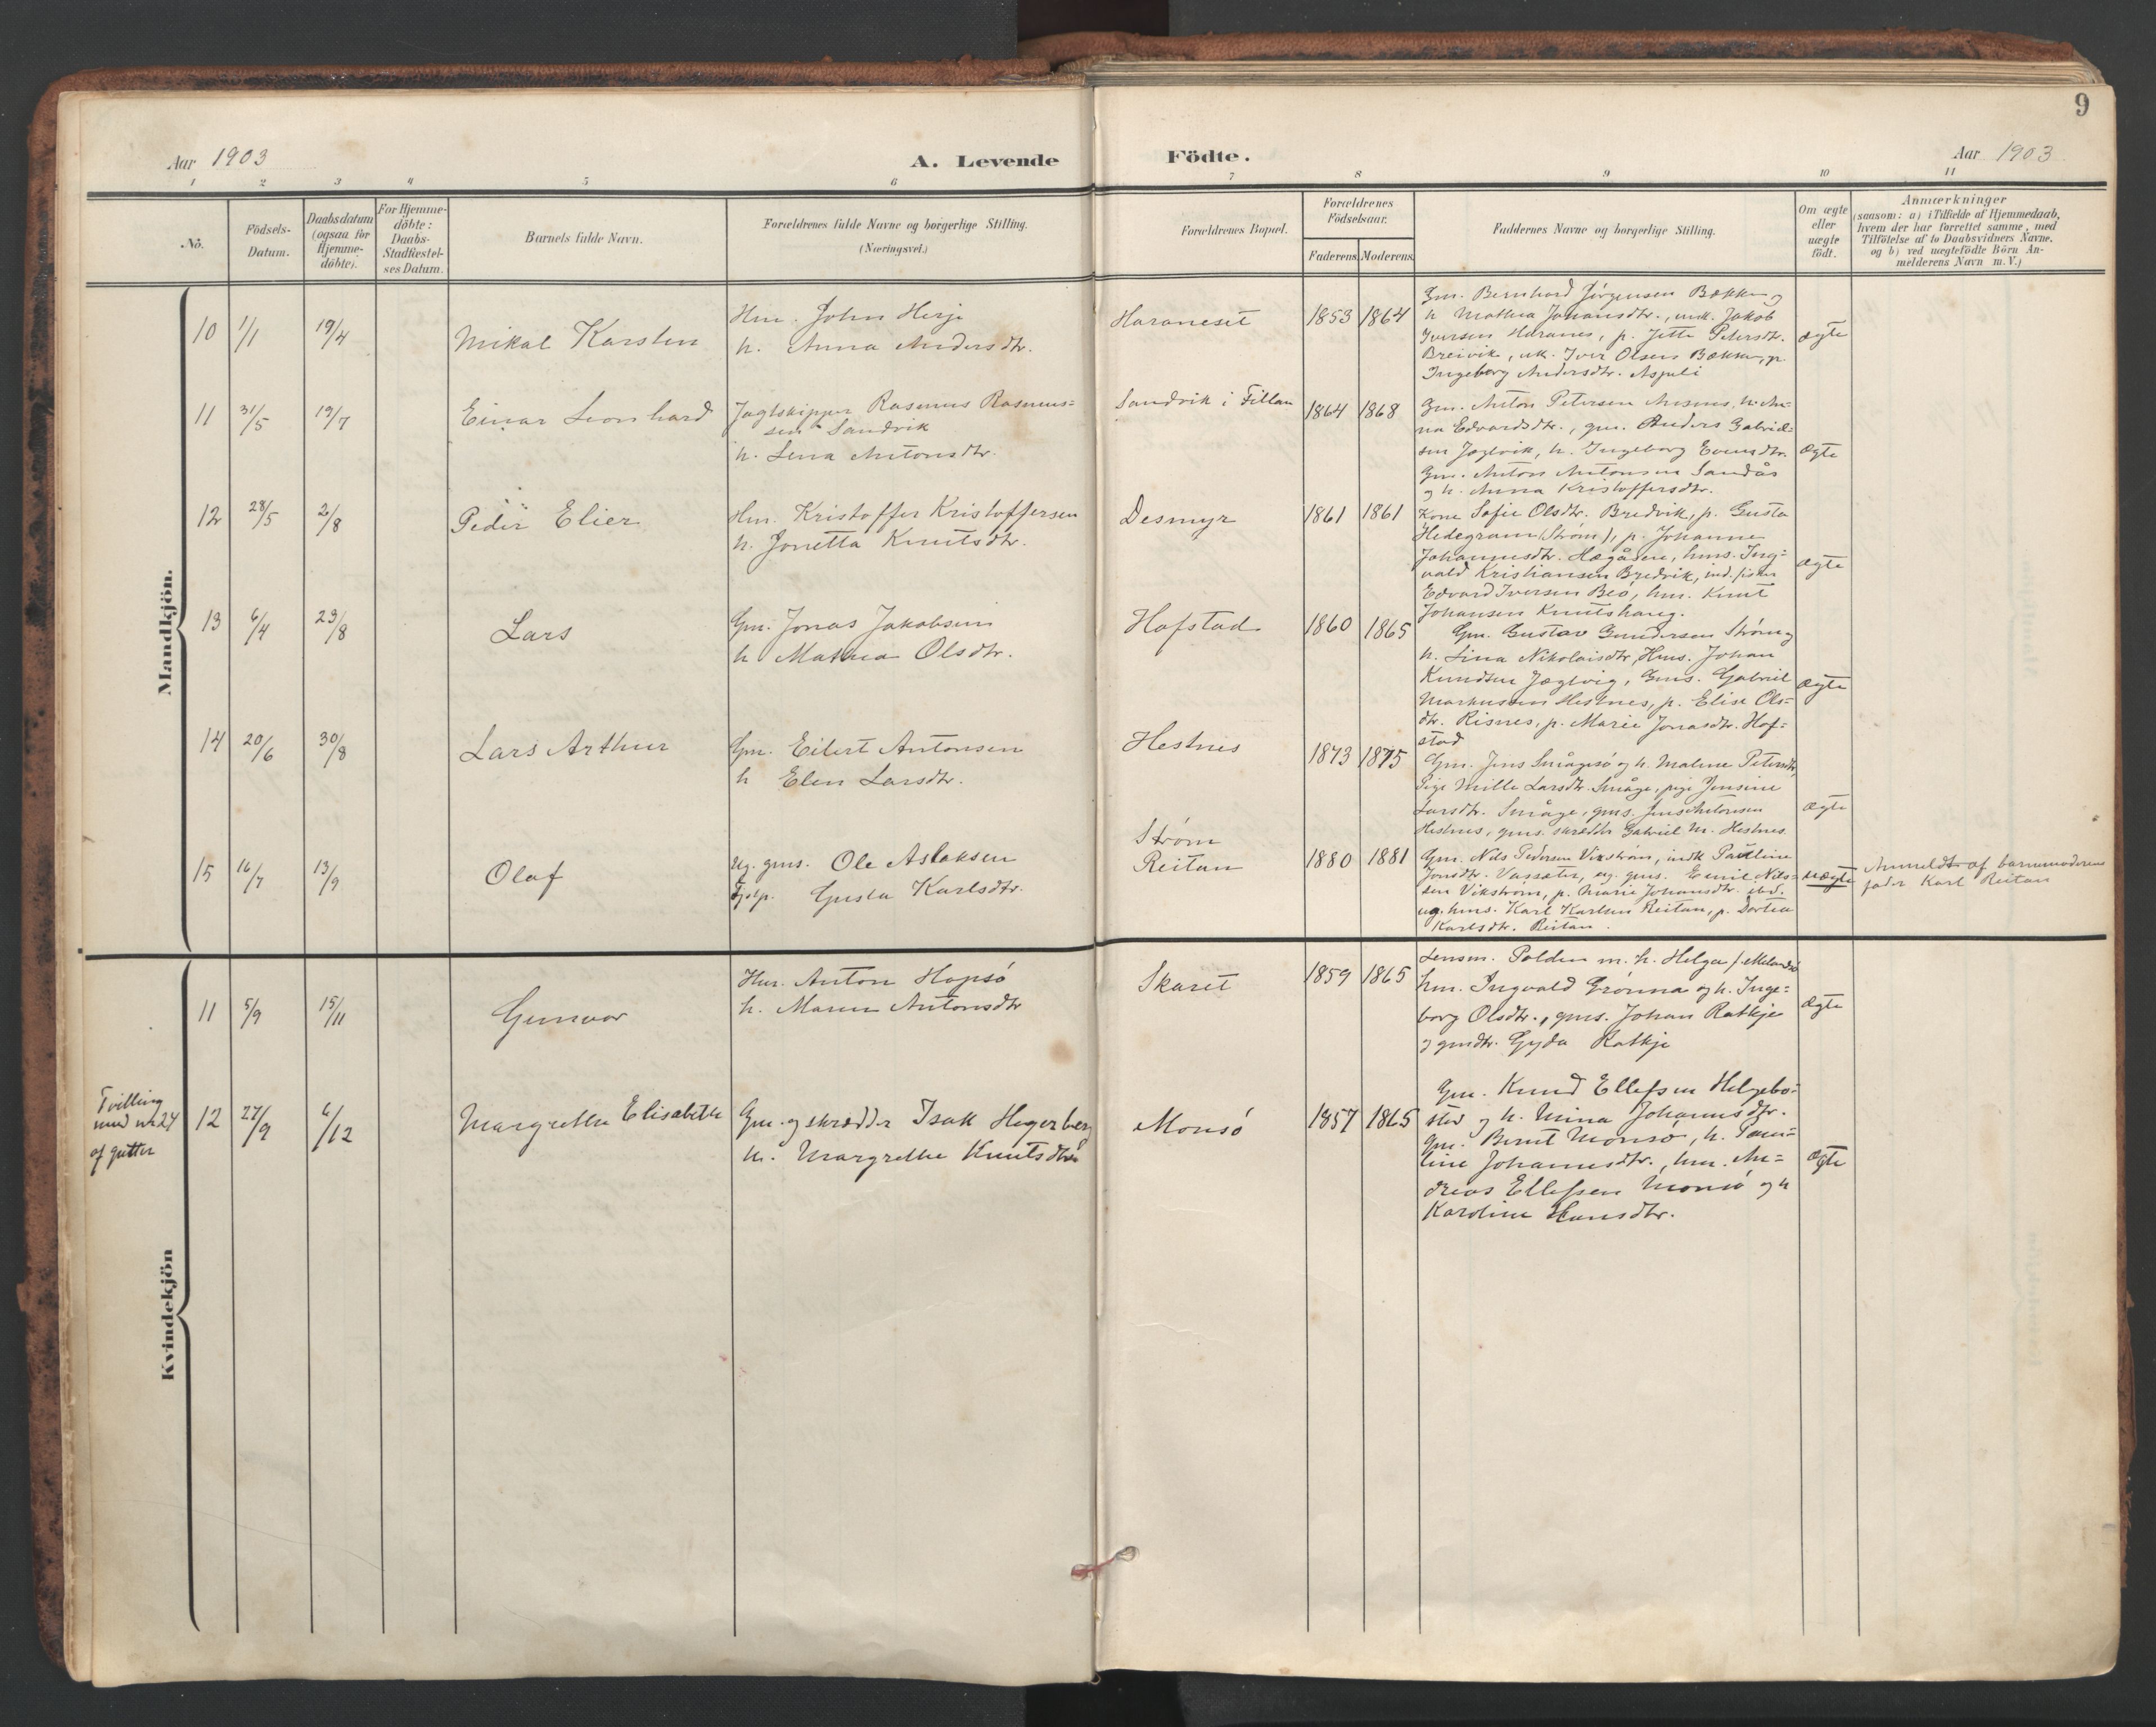 9
Aar 1903
A. Levende Födte.
Aar 1903
1 2 3 4 5 6 7 8 9 10 11
No.
Födsels-Datum.
Daabsdatum (ogsaa for Hjemme-döbte).
For Hjemme-döbte: Daabs-Stadfæstel-ses Datum.
Barnets fulde Navn.
Forældrenes fulde Navne og borgerlige Stilling.
(Næringsvei.)
Forældrenes Bopæl.
Forældrenes Födselsaar.
Faderens. Moderens.
Faddernes Navne og borgerlige Stilling.
Om ægte eller uægte födt.
Anmærkninger
(saasom: a) i Tilfælde af Hjemmedaab,
hvem der har forrettet samme, med
Tilföielse af to Daabsvidners Navne.
og b) ved uægtefödte Börn An-
melderens Navn m. V.)
Mandkjön.
10 1/1 19/4 Mikal Karsten
Hm. John Hirje
h. Anna Andersdtr.
Haraneset 1853 1864
Gm. Bernhard Jørgensen Bækken og
h Mathea Johansdtr., indk. Jakob
Iversen Haranes, p. Jette Petersdtr.
Breivik, uk. Iver Olsen Bækken, p.
Ingeborg Andersdtr. Aspeli
ægte
11 31/5 19/7 Einar Leonhard
Jagtskipper Rasmus Rasmus=
sen Sandvik
h. Lina Antonsdtr.
Sandvik i Fillan 1864 1868
Gm. Anton Petersen Ansnes, h. An=
na Edvardsdtr., gm. Anders Gabriel=
sen Jøglvik, h. Ingeborg Evensdtr.
Gm. Anton Antonsen Sandås
og h. Anna Kristoffersdtr.
Ægte
12 28/5 2/8 Peder Elier
Hm. Kristoffer Kristoffersen
h. Jonetta Knutsdtr.
Desmyr 1861 1861
Kone Sofie Olsdtr. Bredvik, p. Gusta
Hedegram (Strøm), p. Johanne
Johannesdtr. Hægåsen, hms. Ing=
vald Kristiansen Bredvik, ind. fisker
Edvard Iversen Beö, hm. Knut
Johansen Knutshaug.
Ægte
13 6/4 23/8 Lars
Gm. Jonas Jakobsen
h Mathea Olsdtr.
Hofstad 1860 1865
Gm. Gustav Gundersen Strøm og
h. Lina Nikolaisdtr, Hms. Johan
Knudsen Jøglvig, Gms. Gabriel
Markussen Hestnes, p. Elise Ols=
dtr. Risnes, p. Marie Jonasdtr. Hof=
stad
Ægte
14 20/6 30/8 Lars Arthur
Gm. Eilert Antonsen
h Elen Larsdtr.
Hestnes 1873 1875
Gm. Jens Smågesö og h. Maline Petersdtr,
Pige Mille Larsdtr. Småge, pige Jensine
Larsdtr. Småge, gms. Jens Antonsen
Hestnes, gms. skrædder Gabriel M. Hestnes.
Ægte
15 16/7 13/9 Olaf
Ug. gms. Ole Aslaksen
Tjp. Gusta Karlsdtr.
Strøm
Reitan 1880 1881
Gm. Nils Pedersen Vikstrøm, indk Pauline
Jonsdtr. Vassæter, ug. gms. Emil Nils=
sen Vikstrøm, p. Marie Johansdtr. ibd.
ug. hms. Karl Karlsen Reitan, p. Dortea
Karlsdtr. Reitan.
uægte
Anmeldt af barnemoderens
fader Karl Reitan
Kvindekjön
11 5/9 15/11 Gunvor
Hm. Anton Hopsö
h. Maren Antonsdtr
Skaret 1859 1865
Lensm. Polden m. h. Helga f. Melandsö
hm. Ingvald Grönna og h. Inge=
borg Olsdtr., gms. Johan Ratkje
og gmdtr. Gyda Ratkje
Ægte
Tvilling
med nr 24
af gutter
12 27/9 6/12 Margrethe Elisabeth
Gm. og skrædder Isak Hegerberg
h. Margrethe Knutsdtr.
Monsö 1857 1865
Gm. Knud Ellefsen Helgebo=
stad og h. Mina Johannesdtr.
Gm. Bernt Monsö, h. Pau=
line Johannesdtr., hm. An=
dreas Ellefsen Monsö og h
Karoline Hansdtr.
Ægte